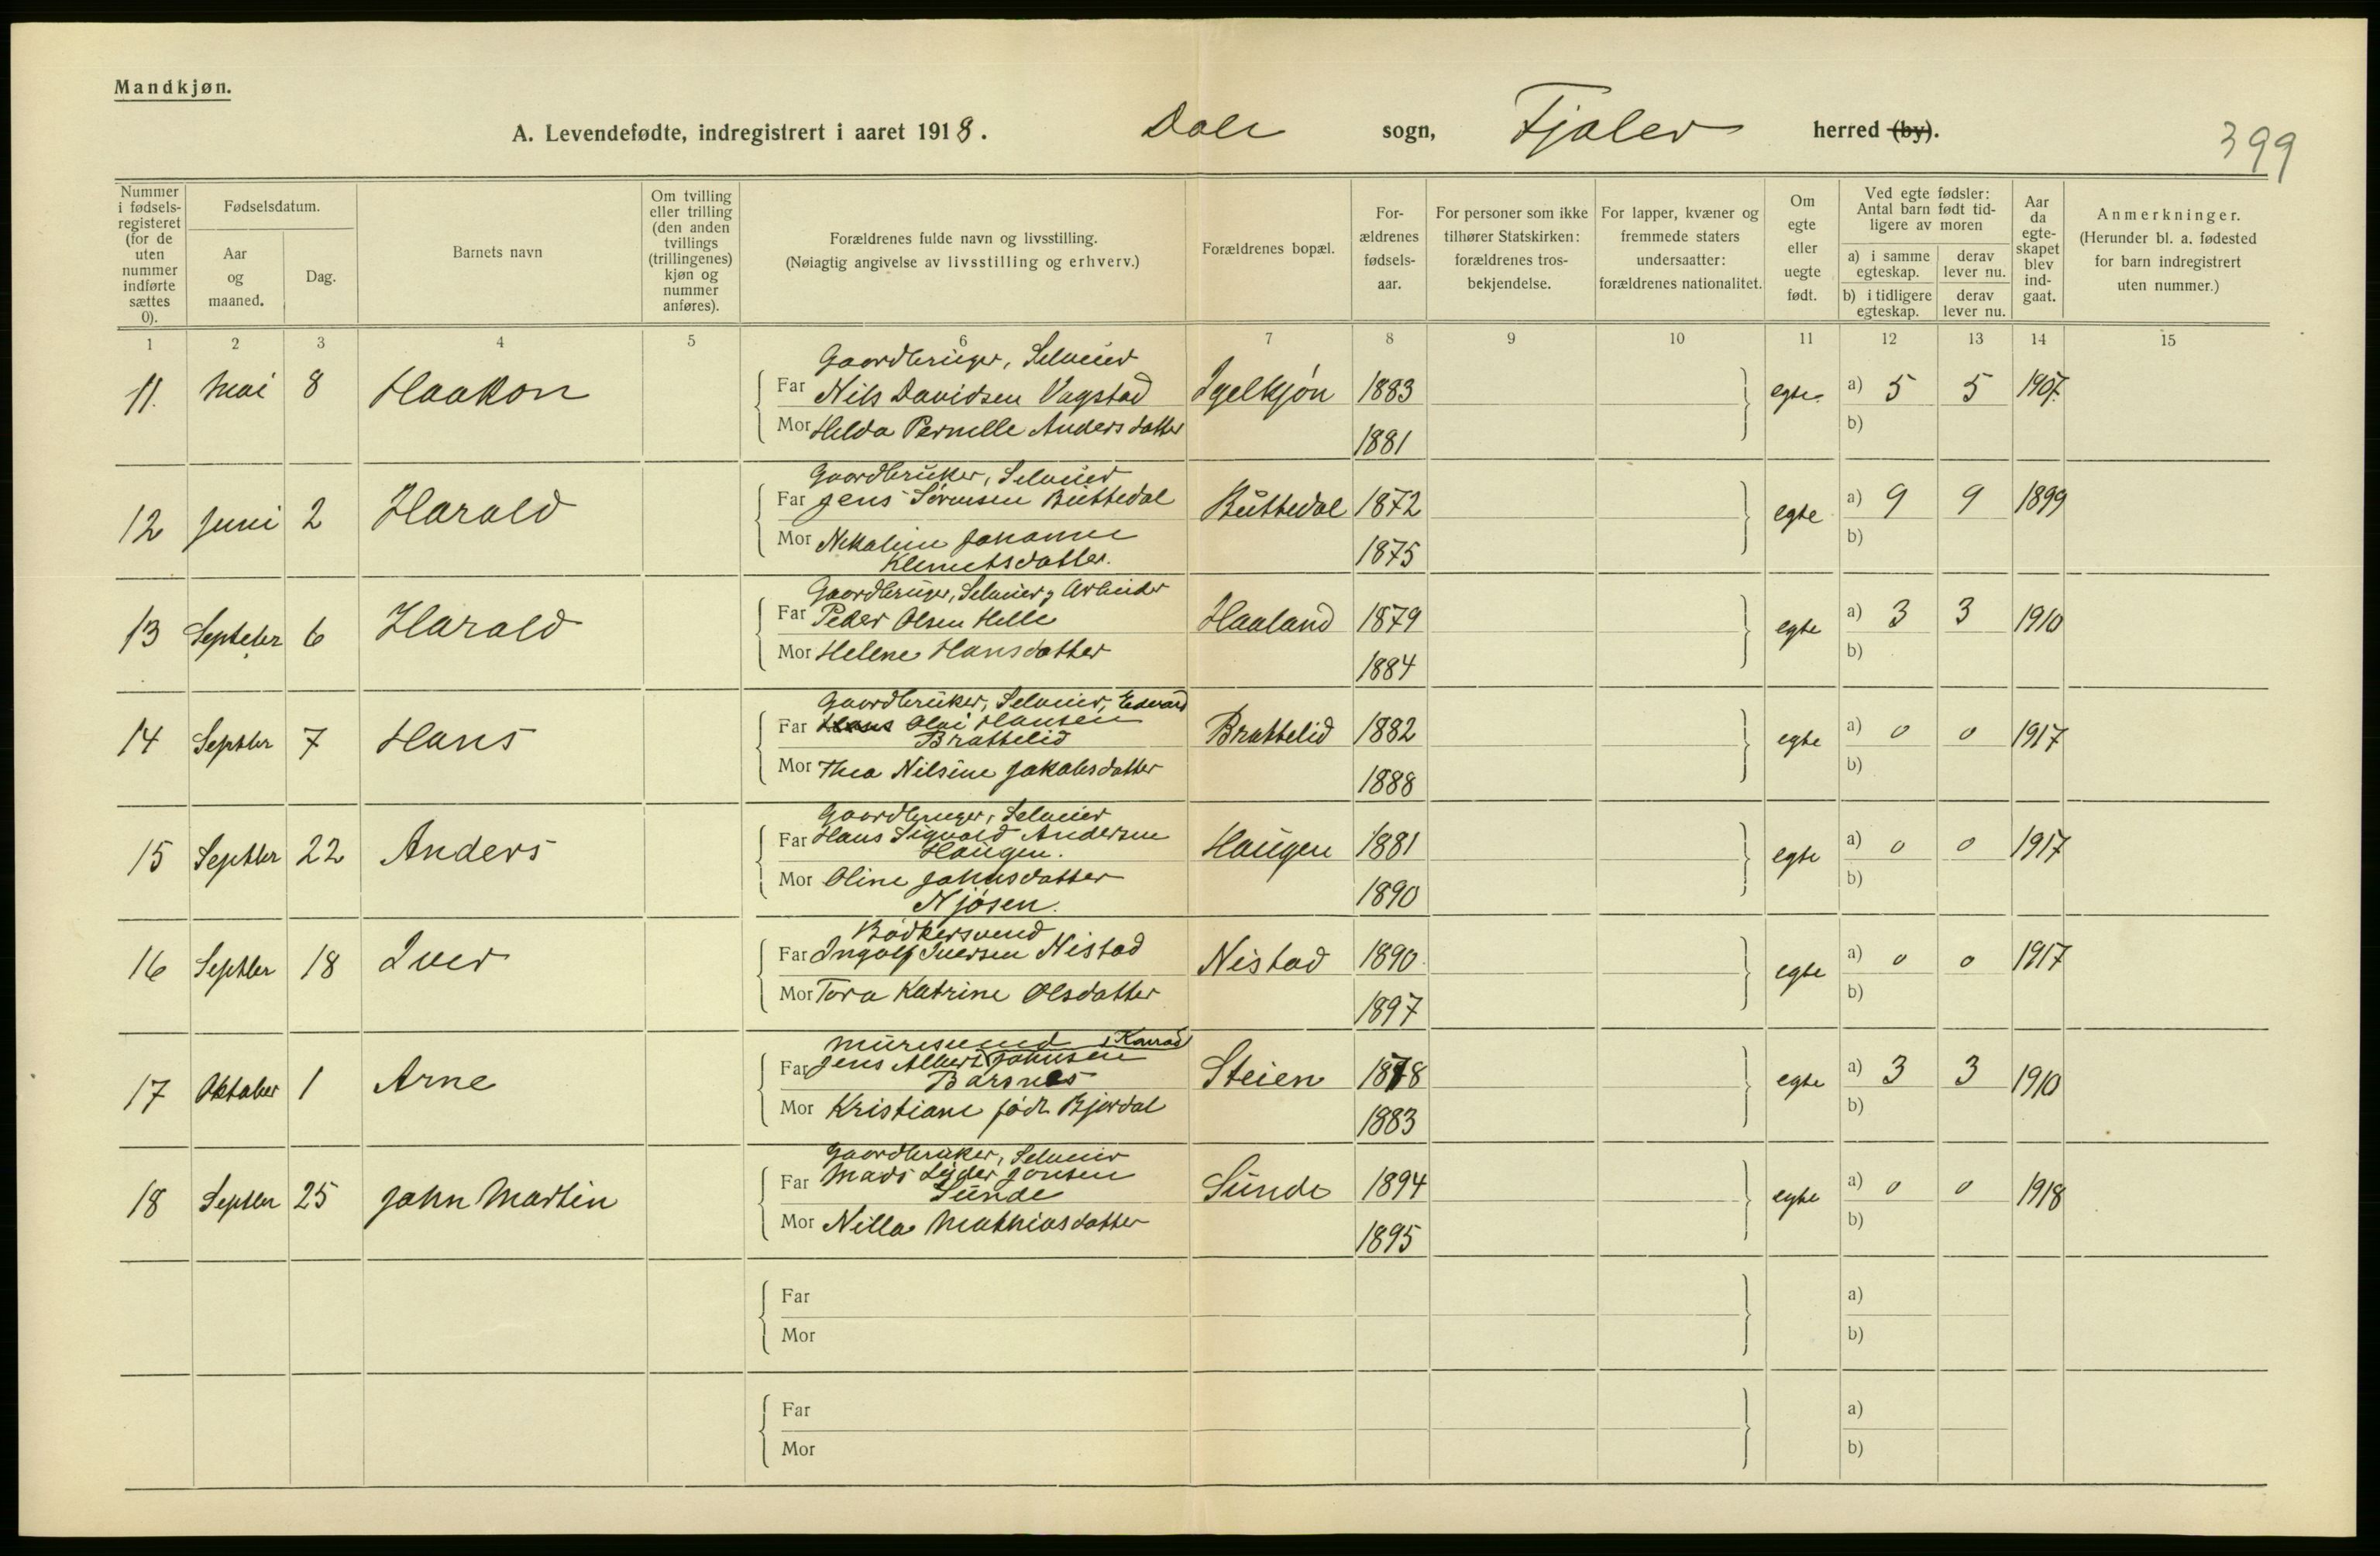 Mandkjøn.
A. Levendefødte, indregistrert i aaret 1918. Dale sogn, Fjaler herred (by).
399
Nummer i fødsels-registeret (for de uten nummer indførte sættes 0).
Fødselsdatum.
Aar og maaned.
Dag.
Barnets navn
Om tvilling eller trilling (den anden tvillings (trillingenes) kjøn og nummer anføres).
Forældrenes fulde navn og livsstilling.
(Nøiagtig angivelse av livsstilling og erhverv.)
Forældrenes bopæl.
For-ældrenes fødsels-aar.
For personer som ikke tilhører Statskirken: forældrenes tros-bekjendelse.
For lapper, kvæner og fremmede staters undersaatter: forældrenes nationalitet.
Om egte eller uegte født.
Ved egte fødsler: Antal barn født tid-ligere av moren
a) i samme egteskap.
derav lever nu.
b) i tidligere egteskap.
derav lever nu.
Aar da egte-skapet blev ind-gaat.
Anmerkninger.
(Herunder bl. a. fødested for barn indregistrert uten nummer.)
1 2 3 4 5 6 7 8 9 10 11 12 13 14 15
Gaardbruger, Selveier
11. Mai 8 Haakon Far Nils Davidsen Vagstad Igelkjøn 1883 egte. a) 5 5 1907.
Mor Helda Pernille Andersdatter 1881 b)
Gaardbruker, Selveier
12 Juni 2 Harald Far Jens Sørensen Buttedal Buttedal 1872 egte a) 9 9 1899
Mor Nikoline Johanne 1875 b)
Klemetsdatter.
Gaardbruger, Selveier, Arbeider
13 Septeber 6 Harald Far Peder Olsen Helle Haaland 1879 egte a) 3 3 1910
Mor Helene Hansdatter 1884 b)
Gaardbruker, Selveier, Edvard
14 Septbr 7 Hans Far Hans Olai Hansen Brattelid 1882 egte a) 0 0 1917
Brattelid
Mor Thea Nilsine Jakobsdatter 1888 b)
Gaardbruger, Selveier
15 Septbr 22 Anders Far Hans Sigvald Andersen Haugen 1881 egte a) 0 0 1917
Haugen.
Mor Oline Johnsdatter 1890 b)
Njøsen.
Bødkersvend
16 Septbr 18 Iver Far Ingolf Iversen Nistad Nistad 1890. egte a) 0 0 1917
Mor Tora Katrine Olsdatter 1897 b)
Muresvend Konrad
17 Oktober 1 Arne Far Jens Albert Johnsen Steien 1878 egte a) 3 3 1910
Barsnes
Mor Kristiane født Bjordal 1883 b)
Gaardbruker, Selveier
18 Septbr 25 John Martin Far Mads Lyder Jonsen Sunde 1894 egte a) 0 0 1918
Sunde
Mor Nilla Mathiasdatter 1895 b)
Far a)
Mor b)
Far a)
Mor b)